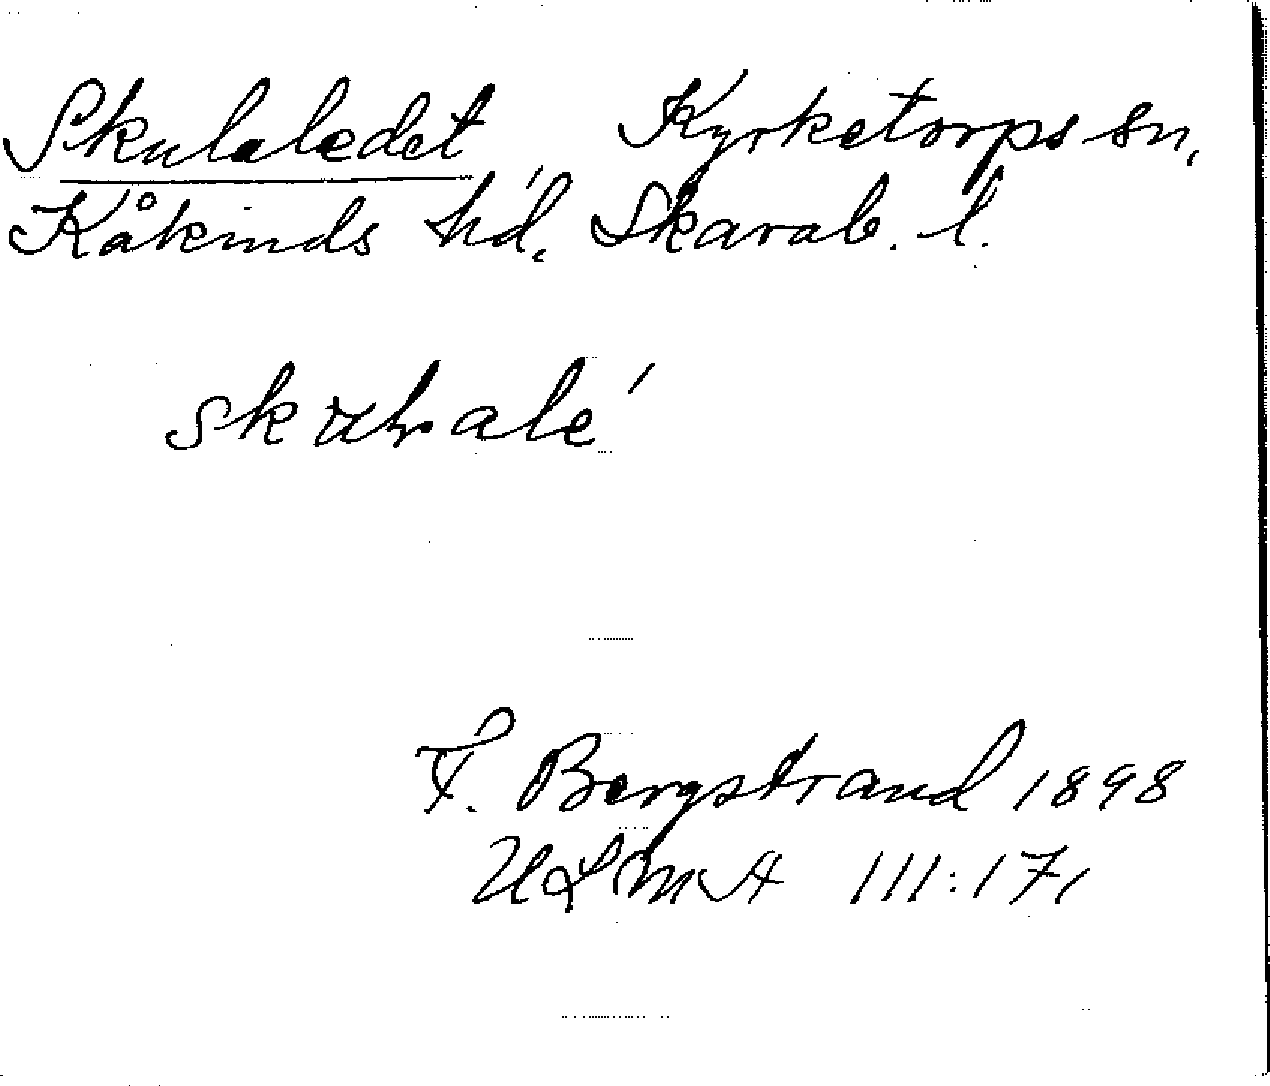 Skulaledet, Kyrketorps sn,
Kåkinds hd, Skarab. l.
F. Bergstrand 1898
ULMA 111:17,